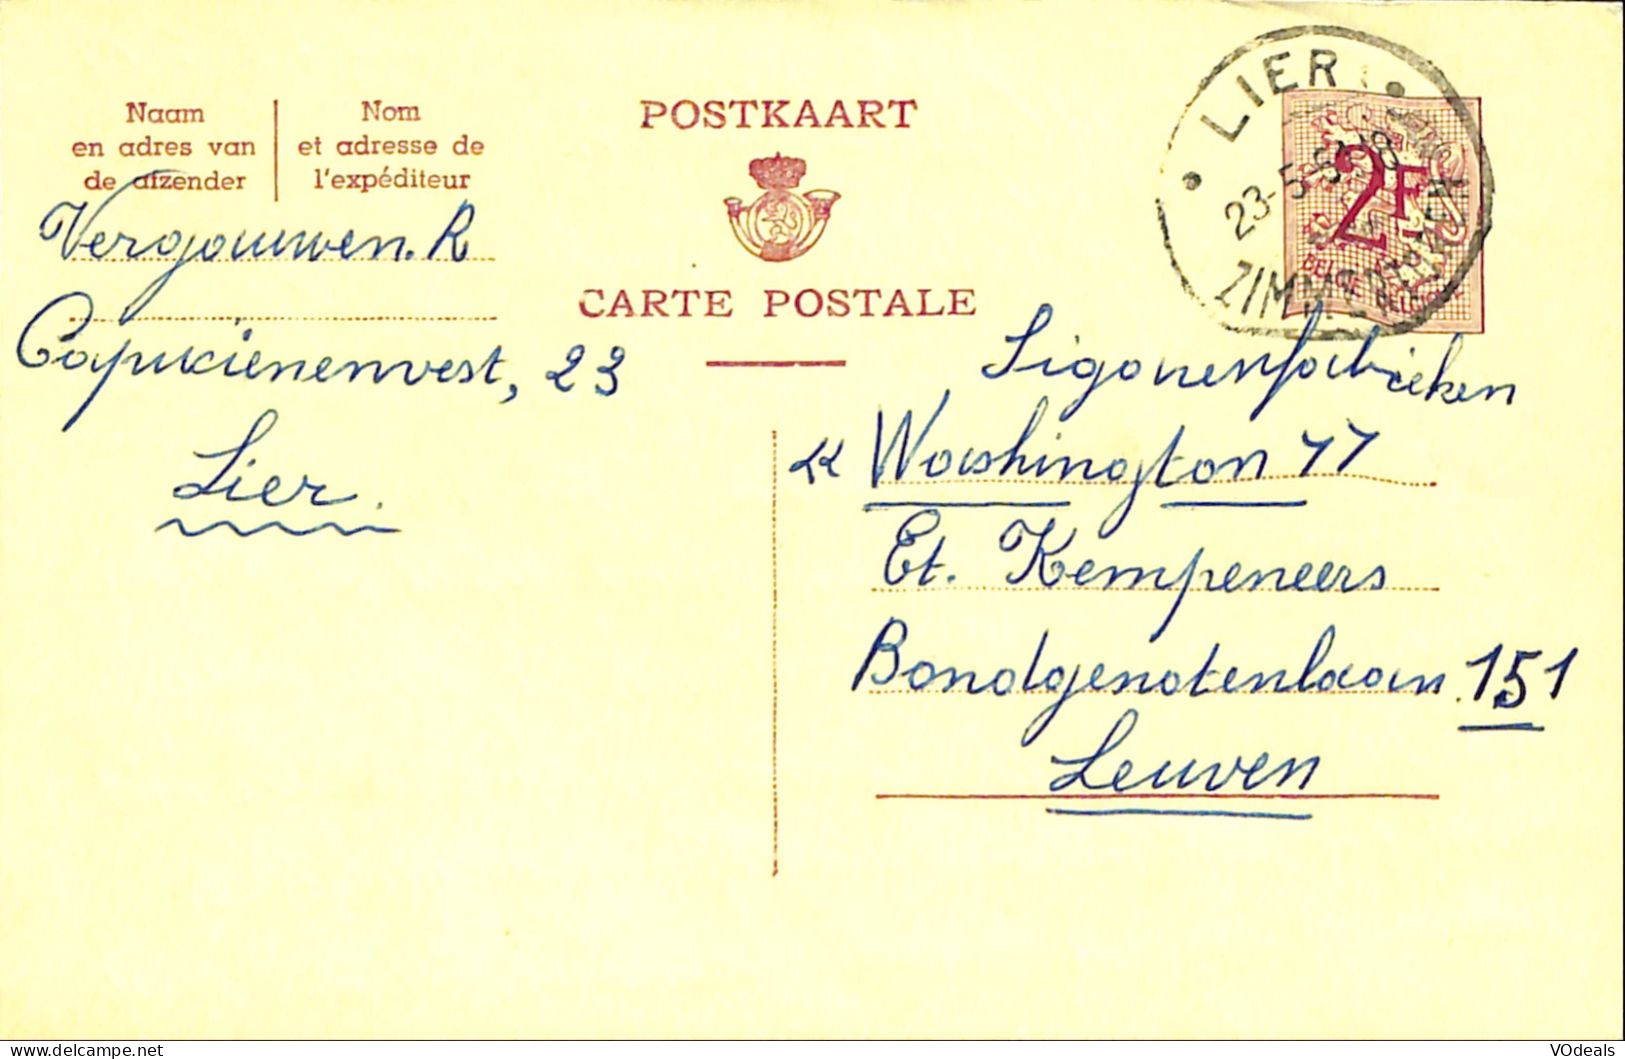 Naam
en adres van
de afzender
Nom
et adresse de
l'expéditeur
POSTKAART
CARTE POSTALE
LIER
23-5-
ZIMMER
2F
Vergouwen. R
Capucienenvest, 23
Lier.
Sigarenfabrieken
« Washington "
Et. Kempeneers
Bondgenotenlaan 151
Leuven
VOdeals